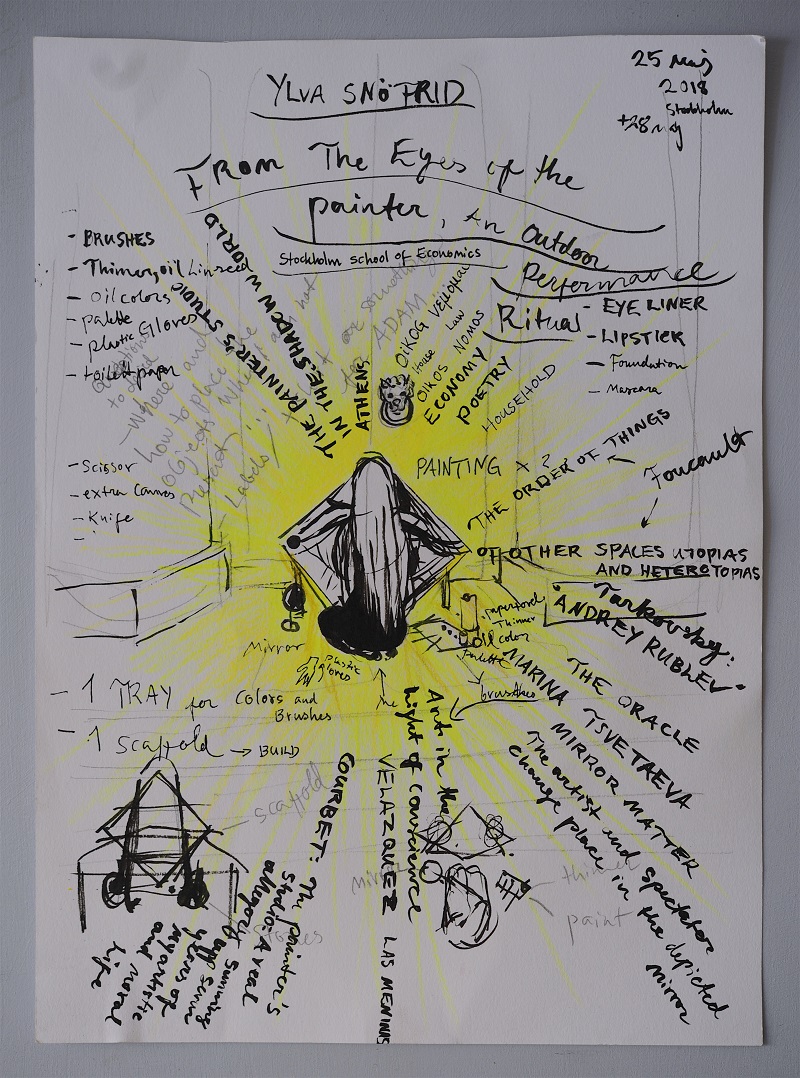 YLVA SNÖFRID
25 maj
2018
Stockholm
+28 maj
FROM The Eyes of the
painter, An Outdoor
Performance
Ritual
Stockholm school of Economics
- BRUSHES
- Thinner, oil Linseed
- oil colors
- palette
- plastic Gloves
- toilet paper
- Scissor
- extra Canvas
- Knife
-
- EYE LINER
- LIPSTICK
- Foundation
- Mascara
to do
- Where and
how to place the
objects
Present
- Labels
THE PAINTER'S STUDIO
IN THE SHADOW WORLD
ATHENS
for ADAM
OIKOS
OIKOS NOMOS
House Law
ECONOMY
POETRY
HOUSEHOLD
PAINTING x ?
THE ORDER OF THINGS
Foucault
OF OTHER SPACES UTOPIAS
AND HETEROTOPIAS
Tarkovsky:
ANDREY RUBLEV
THE ORACLE
MARINA TSVETAEVA
MIRROR MATTER
The artist and spectator
change place in the depicted
mirror
Thinner
oil color
palette
brushes
Mirror
plastic
gloves
- 1 TRAY for Colors and
Brushes
- 1 Scaffold → BUILD
scaffold
the
Art in the
Light of Conscience
VELAZQUEZ LAS MENINAS
COURBET: The painter's
studio: A real
allegory summing
up seven
years of
my artistic
and moral
life
mirror
thinner
paint